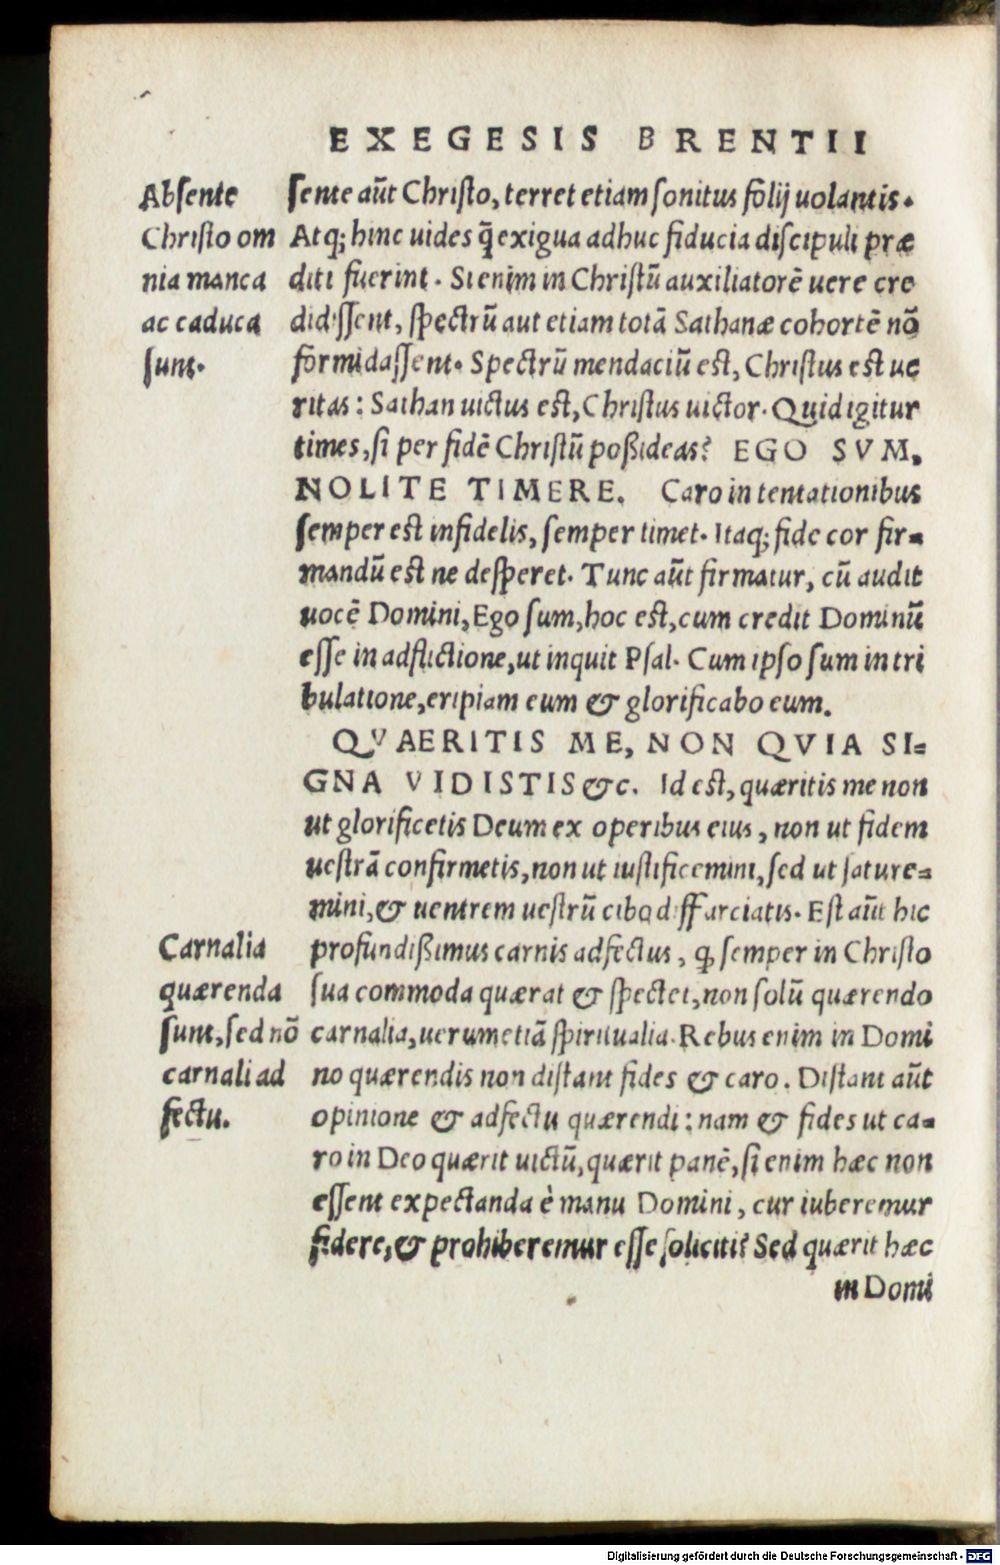 EXEGESIS BRENTII
Absente
Christo om
nia manca
ac caduca
sunt.
sente aūt Christo, terret etiam sonitus folij uolantis.
Atq; hinc uides q̄ exigua adhuc fiducia discipuli præ
diti fuerint. Si enim in Christū auxiliatorē uere cre
didissent, spectrū aut etiam totā Sathanæ cohortē nō
formidassent. Spectrū mendaciū est, Christus est ue
ritas: Sathan uictus est, Christus uictor. Quid igitur
times, si per fidē Christū poßideas? EGO SVM,
NOLITE TIMERE. Caro in tentationibus
semper est infidelis, semper timet. Itaq; fide cor fir=
mandū est ne desperet. Tunc aūt firmatur, cū audit
uocē Domini, Ego sum, hoc est, cum credit Dominū
esse in adflictione, ut inquit Psal. Cum ipso sum in tri
bulatione, eripiam eum & glorificabo eum.
QVAERITIS ME, NON QVIA SI=
GNA VIDISTIS &c. Id est, quæritis me non
ut glorificetis Deum ex operibus eius, non ut fidem
uestrā confirmetis, non ut iustificemini, sed ut sature=
mini, & uentrem uestrū cibo diffarciatis. Est aūt hic
profundißimus carnis adfectus, ꝙ semper in Christo
sua commoda quærat & spectet, non solū quærendo
carnalia, uerumetiā spiritualia. Rebus enim in Domi
no quærendis non distant fides & caro. Distant aūt
opinione & adfectu quærendi: nam & fides ut ca=
ro in Deo quærit uictū, quærit panē, si enim hæc non
essent expectanda è manu Domini, cur iuberemur
fidere, & prohiberemur esse soliciti? Sed quærit hæc
in Domi
Carnalia
quærenda
sunt, sed nō
carnali ad
fectu.
Digitalisierung gefördert durch die Deutsche Forschungsgemeinschaft - DFG